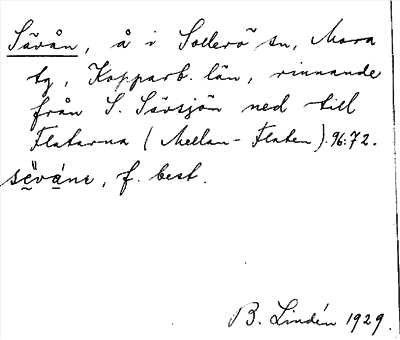 Särån, å i Sollerö sn, Mora
tg, Kopparb. län, rinnande
från S. Särsjön ned till
Flatarna (Mellan-Flaten). 96:72.
f. best.
B. Lindén 1929.